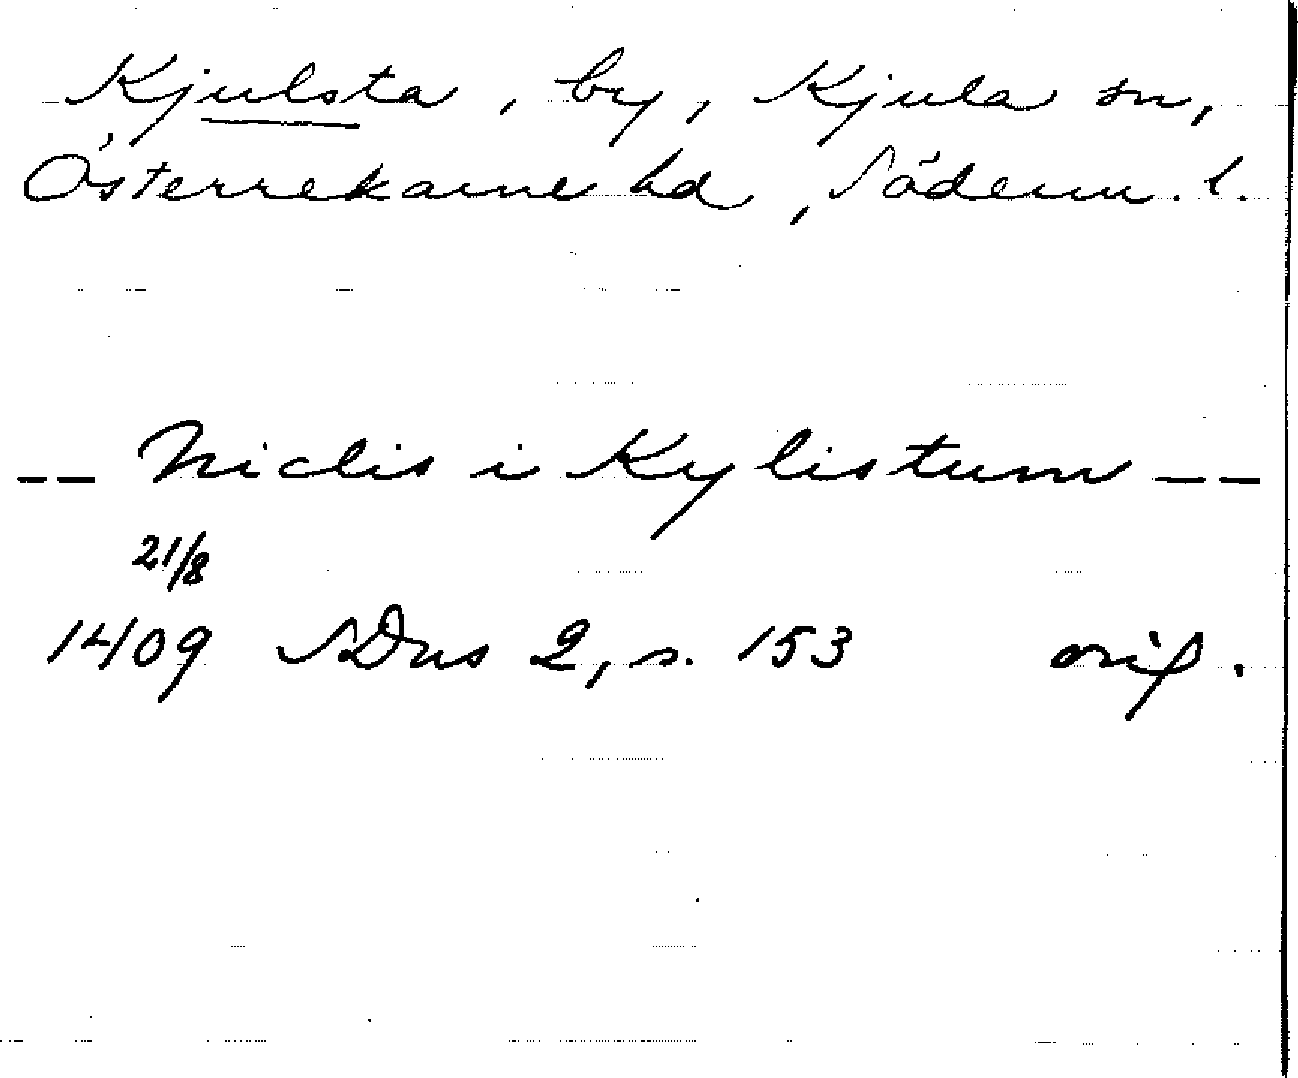 Kjulsta, by, Kjula sn,
Österrekarne hd, Söderm. l.
-- Niclis i Kylistum --
21/8
1409 SDns 2, s. 153 orig.